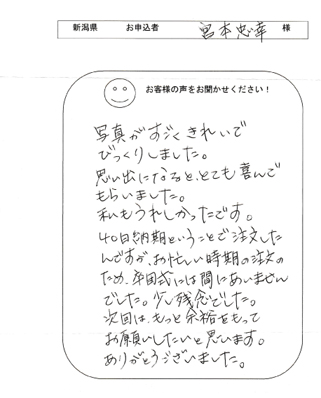 新潟県 お申込者 宮本忠幸 様
お客様の声をお聞かせください！
写真がすごくきれいで
びっくりしました。
思い出になると、とても喜んで
もらいました。
私もうれしかったです。
40日納期ということで注文した
んですが、お忙しい時期の注文の
ため、卒園式には間にあいません
でした。少し残念でした。
次回は、もっと余裕をもって
お願いしたいと思います。
ありがとうございました。